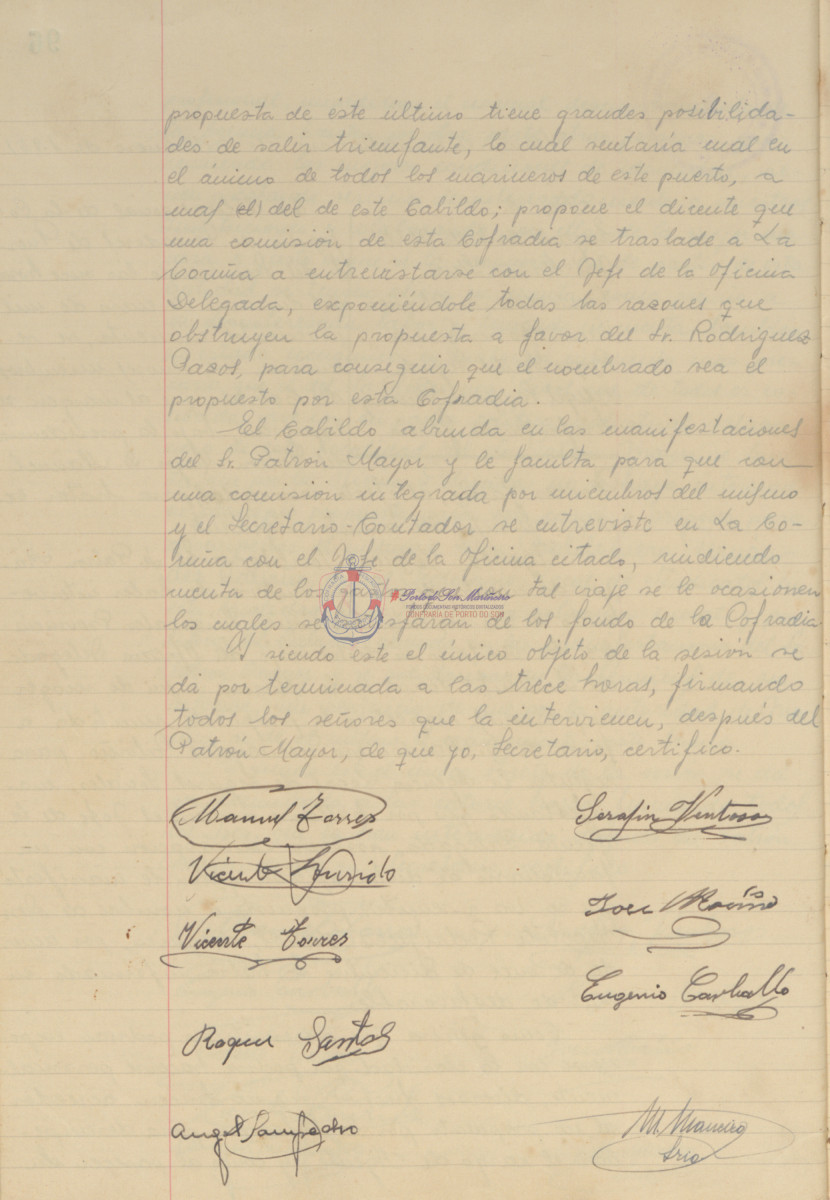 propuesta de éste último tiene grandes posibilida-
des de salir triunfante, lo cual sentaría mal en
el ánimo de todos los marineros de este puerto, a
mas (el) del de este Cabildo; propone el dicente que
una comisión de esta Cofradia se traslade a La
Coruña a entrevistarse con el Jefe de la Oficina
Delegada, exponiéndole todas las razones que
obstruyen la propuesta a favor del Sr. Rodriguez
Pazos, para conseguir que el nombrado sea el
propuesto por esta Cofradia.
El Cabildo abunda en las manifestaciones
del Sr. Patrón Mayor y le faculta para que con
una comisión integrada por miembros del mismo
y el Secretario-Contador se entreviste en La Co-
ruña con el Jefe de la Oficina citado, rindiendo
cuenta de los tal viaje se le ocasionen
los cuales de los fondo de la Cofradia
Y siendo este el único objeto de la sesión se
dá por terminada a las trece horas, firmando
todos los señores que la intervienen, después del
Patrón Mayor, de que yo, Secretario, certifico.
Manuel Torres
Serafin Ventoso
Vicente
Jose
Vicente Torres
Eugenio Carballo
Roque Santos
Angel Sampedro
M. Maneiro
Srio
#PortodeSonMariñeiro
FONDOS DOCUMENTAIS HISTÓRICOS DIXITALIZADOS
CONFRARÍA DE PORTO DO SON